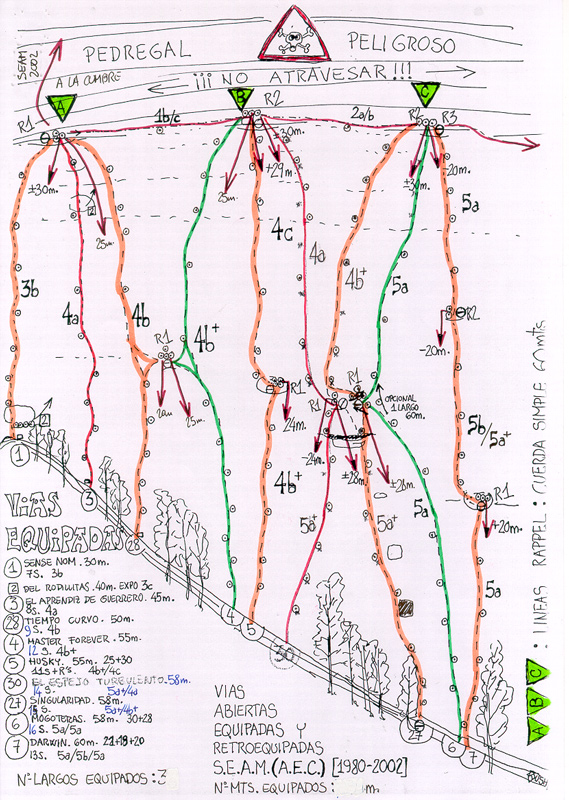 SEAM
2002
PEDREGAL
PELIGROSO
A LA CUMBRE
¡¡¡ NO ATRAVESAR!!!
A
B
C
R1
1b/c
R2
2a/b
R2
R3
±30m.
25m.
25m.
±29m.
±30m.
±30m.
20m.
3b
4a
4b
4b+
4c
4a
4b+
5a
5a
2
R1
25m.
R2
-20m.
R1
24m.
R1
R1
OPCIONAL
1 LARGO
60m.
-24m.
±28m.
±28m.
4b+
5a+
5a+
5a
5b/5a+
R1
±20m.
5a
2
1
3
28
4
5
30
27
6
7
VIAS
EQUIPADAS
1 SENSE NOM. 30m.
7S. 3b
2 DEL RODILLITAS. 40m. EXPO 3c
3 EL APRENDIZ DE GUERRERO. 45m.
8S. 4a
28 TIEMPO CURVO. 50m.
9 S. 4b
4 MASTER FOREVER. 55m.
12 S. 4b+
5 HUSKY. 55m. 25+30
11S+R's. 4b+/4c
30 EL ESPEJO TURBULENTO. 58m.
14 S. 5a+/4a
27 SINGULARIDAD. 58m.
15 S. 5a+/4b+
6 MOGOTERAS. 58m. 30+28
16 S. 5a/5a
7 DARWIN. 60m. 21+19+20
13S. 5a/5b/5a
Nº LARGOS EQUIPADOS: 3
VIAS
ABIERTAS
EQUIPADAS Y
RETROEQUIPADAS
S.E.A.M. (A.E.C.) [1980-2002]
Nº MTS. EQUIPADOS: m.
A B C : LINEAS RAPPEL : CUERDA SIMPLE 60mts